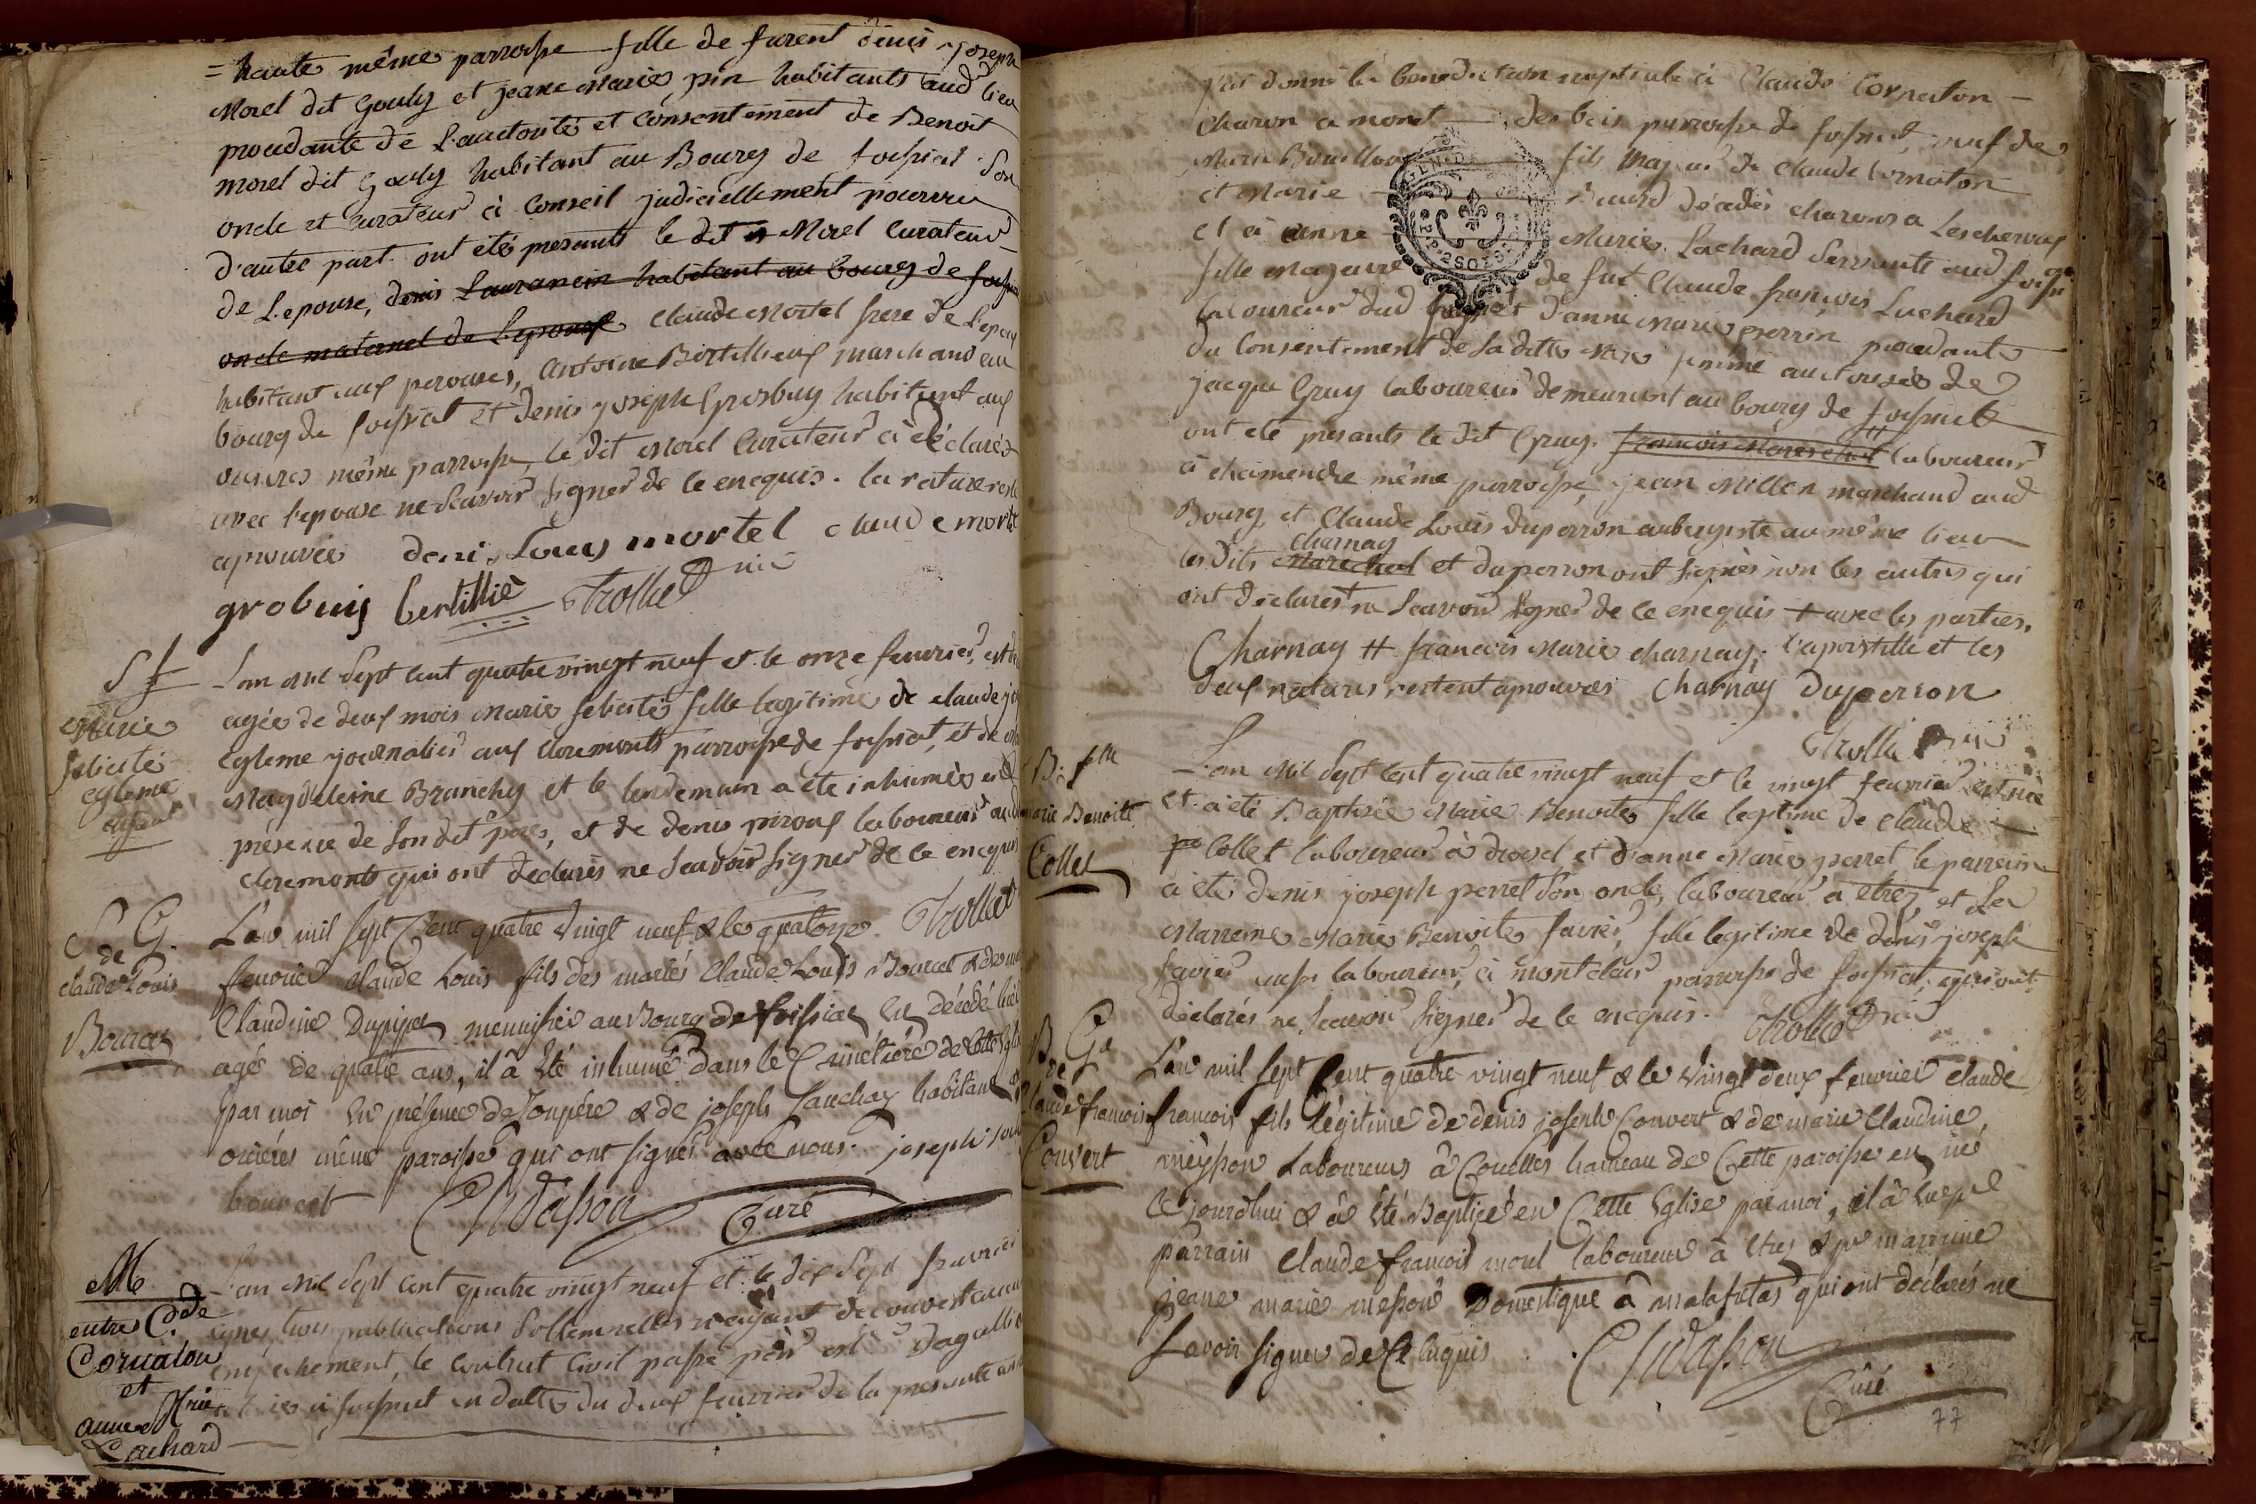 = haute même parroisse fille de furent denis joseph
Morel dit Gouly et jeane Marie pin habitants aud lieu
procedante de L'auctorité et Consentement de Benoit
morel dit Gouly habitant au Bourg de foissiat Son
oncle et Curateur à Conseil judiciellement pourvu
d'autre part. ont étés presants le dit Morel Curateur
de L'epouse, denis Lauranein habitant au bourg de
oncle maternel de L'epouse Claude Mortel frere de L'epoux
habitant aux perouses, antoine Bertillieux marchand au
bourg de foissiat et denis joseph Grosbuy habitant aux
même parroisse, le dit Morel Curateur à déclaré
avec l'epouse ne Scavoir Signer de ce enequis. la rature reste
aprouvée denis Louis mortel claude mortel
grobuis bertillié Trollet curé
S f
Marie
felicité
egleme
enfant
L'an mil Sept cent quatre vingt neuf et le onze fevrier, est
agée de deux mois Marie felicité fille legitime de claude
Egleme journalier aux Claremonts parroisse de foissiat, et de
Magdeleine Branchy et le lendemain a été inhumée en
présence de Son dit père, et de denis piroux laboureur
Claremonts qui ont declarés ne Scavoir Signer de ce enequis
Trollet
S. G.
de
claude Louis
Bouvet
L'an mil sept Cent quatre vingt neuf & le quatorze
fevrier claude Louis fils des mariés Claude Louis Bouvet & de
Claudine Dupupet menuisier au Bourg de foissiat Est décédé hier
agé de quatre ans, il à été inhumé dans le Cimetière de cette Eglise
par moi En présence de Son père & de joseph Sauchay habitant
même paroisse qui ont signés avec nous. joseph
bouvert Chidasson Curé
M
entre C.de
Cornaton
et
anne Mrie
Lachard
L'an Mil Sept cent quatre vingt neuf et le dix Sept fevrier
après trois publications Sollemnelles n'ayant decouvert aucun
empechement, le Contrut Civil passé
à foissiat en datte du deux fevrier de la presente année
j'ai donné la benediction nuptiale à Claude Cornaton
charon a monet des bois parroisse de foissiat, veuf de
Marie fils Majeur de Claude Cornaton
et Marie décédés charons a Lescheroux
et à anne Marie Lachard Servante aud foissiat
fille Majeure de fut Claude françois Luchard
laboureur dud foissiat d'anne Marie perrin procedante
du Consentement de Sa ditte Mere femme auctorisée de
jacque Gruy laboureur demeurant au bourg de foissiat
ont été presants le dit Gruy. françois Marechal # laboureur
à chamendre même parroisse, jean Millon marchand aud
Bourg et Claude Louis Duperron aubergiste au même lieu
charnay
les dits Marechal et duperron ont Signés non les autres qui
ont déclarés ne Scavoir Signer de ce enequis + avec les parties.
Charnay # françois Marie charnay; l'apostille et les
deux ratures restent aprouvées Charnay Duperron
Trollet curé
B. flle
marie Benoitte
Collet
L'an Mil Sept Cent quatre vingt neuf et le vingt fevrier est née
et à été Baptisée Marie Benoite fille legitime de claude
Collet laboureur à et d'anne Marie perret le parrein
à été denis joseph perret Son oncle, laboureur a etrez et La
Marreine Marie Benoite favier, fille legitime de denis joseph
favier aussi laboureur, à montclair parroisse de foissiat, qui ont
déclarés ne Scavoir Signer de ce enequis. Trollet curé
B. G.
de
Claude francois
Convert
L'an mil sept Cent quatre vingt neuf & le vingt deux fevrier claude
francois fils légitime de denis joseph Convert & de marie Claudine
meysson Laboureurs à Couelles hameau de Cette paroisse est né
Ce jourdhui & à été Baptisé en Cette Eglise par moi, il à eu pr
parrain Claude francois morel laboureur à etrez & pr marraine
jeane marie messon Domestique à malafretas qui ont déclarés ne
Savoir signer de Ce Enquis Chidasson
Curé
77